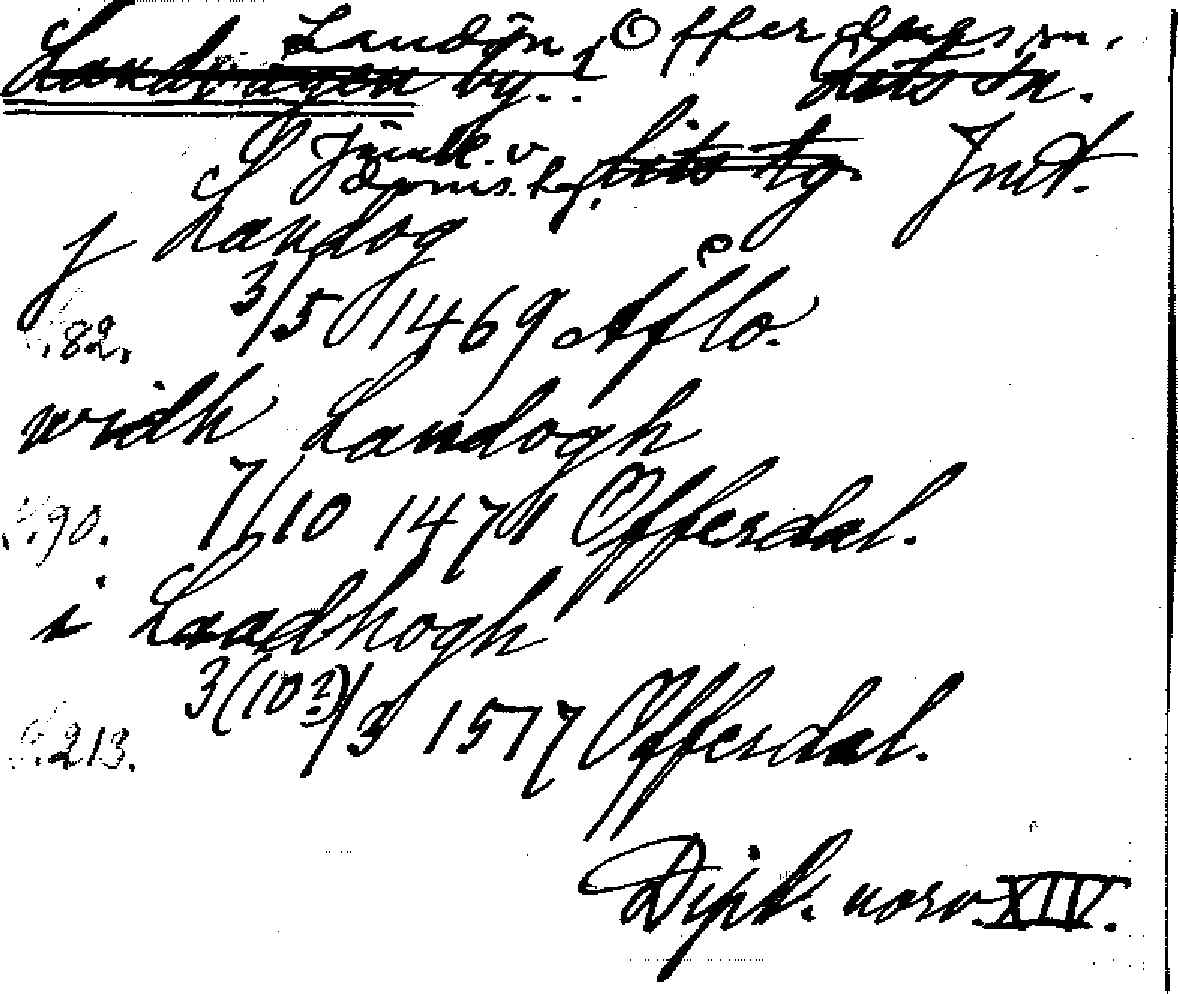 Landön, Offerdals sn.
Landvågen by. Lits sn.
Jämtl. v
doms. tg. Lits tg. Jmt.
j Landog
s.82. 3/5 1469 Åflo.
widh Landogh
s.190. 7/10 1471 Offerdal.
i Laadhogh
s.213. 3(10?)/3 1517 Offerdal.
Dipl. norv. XIV.